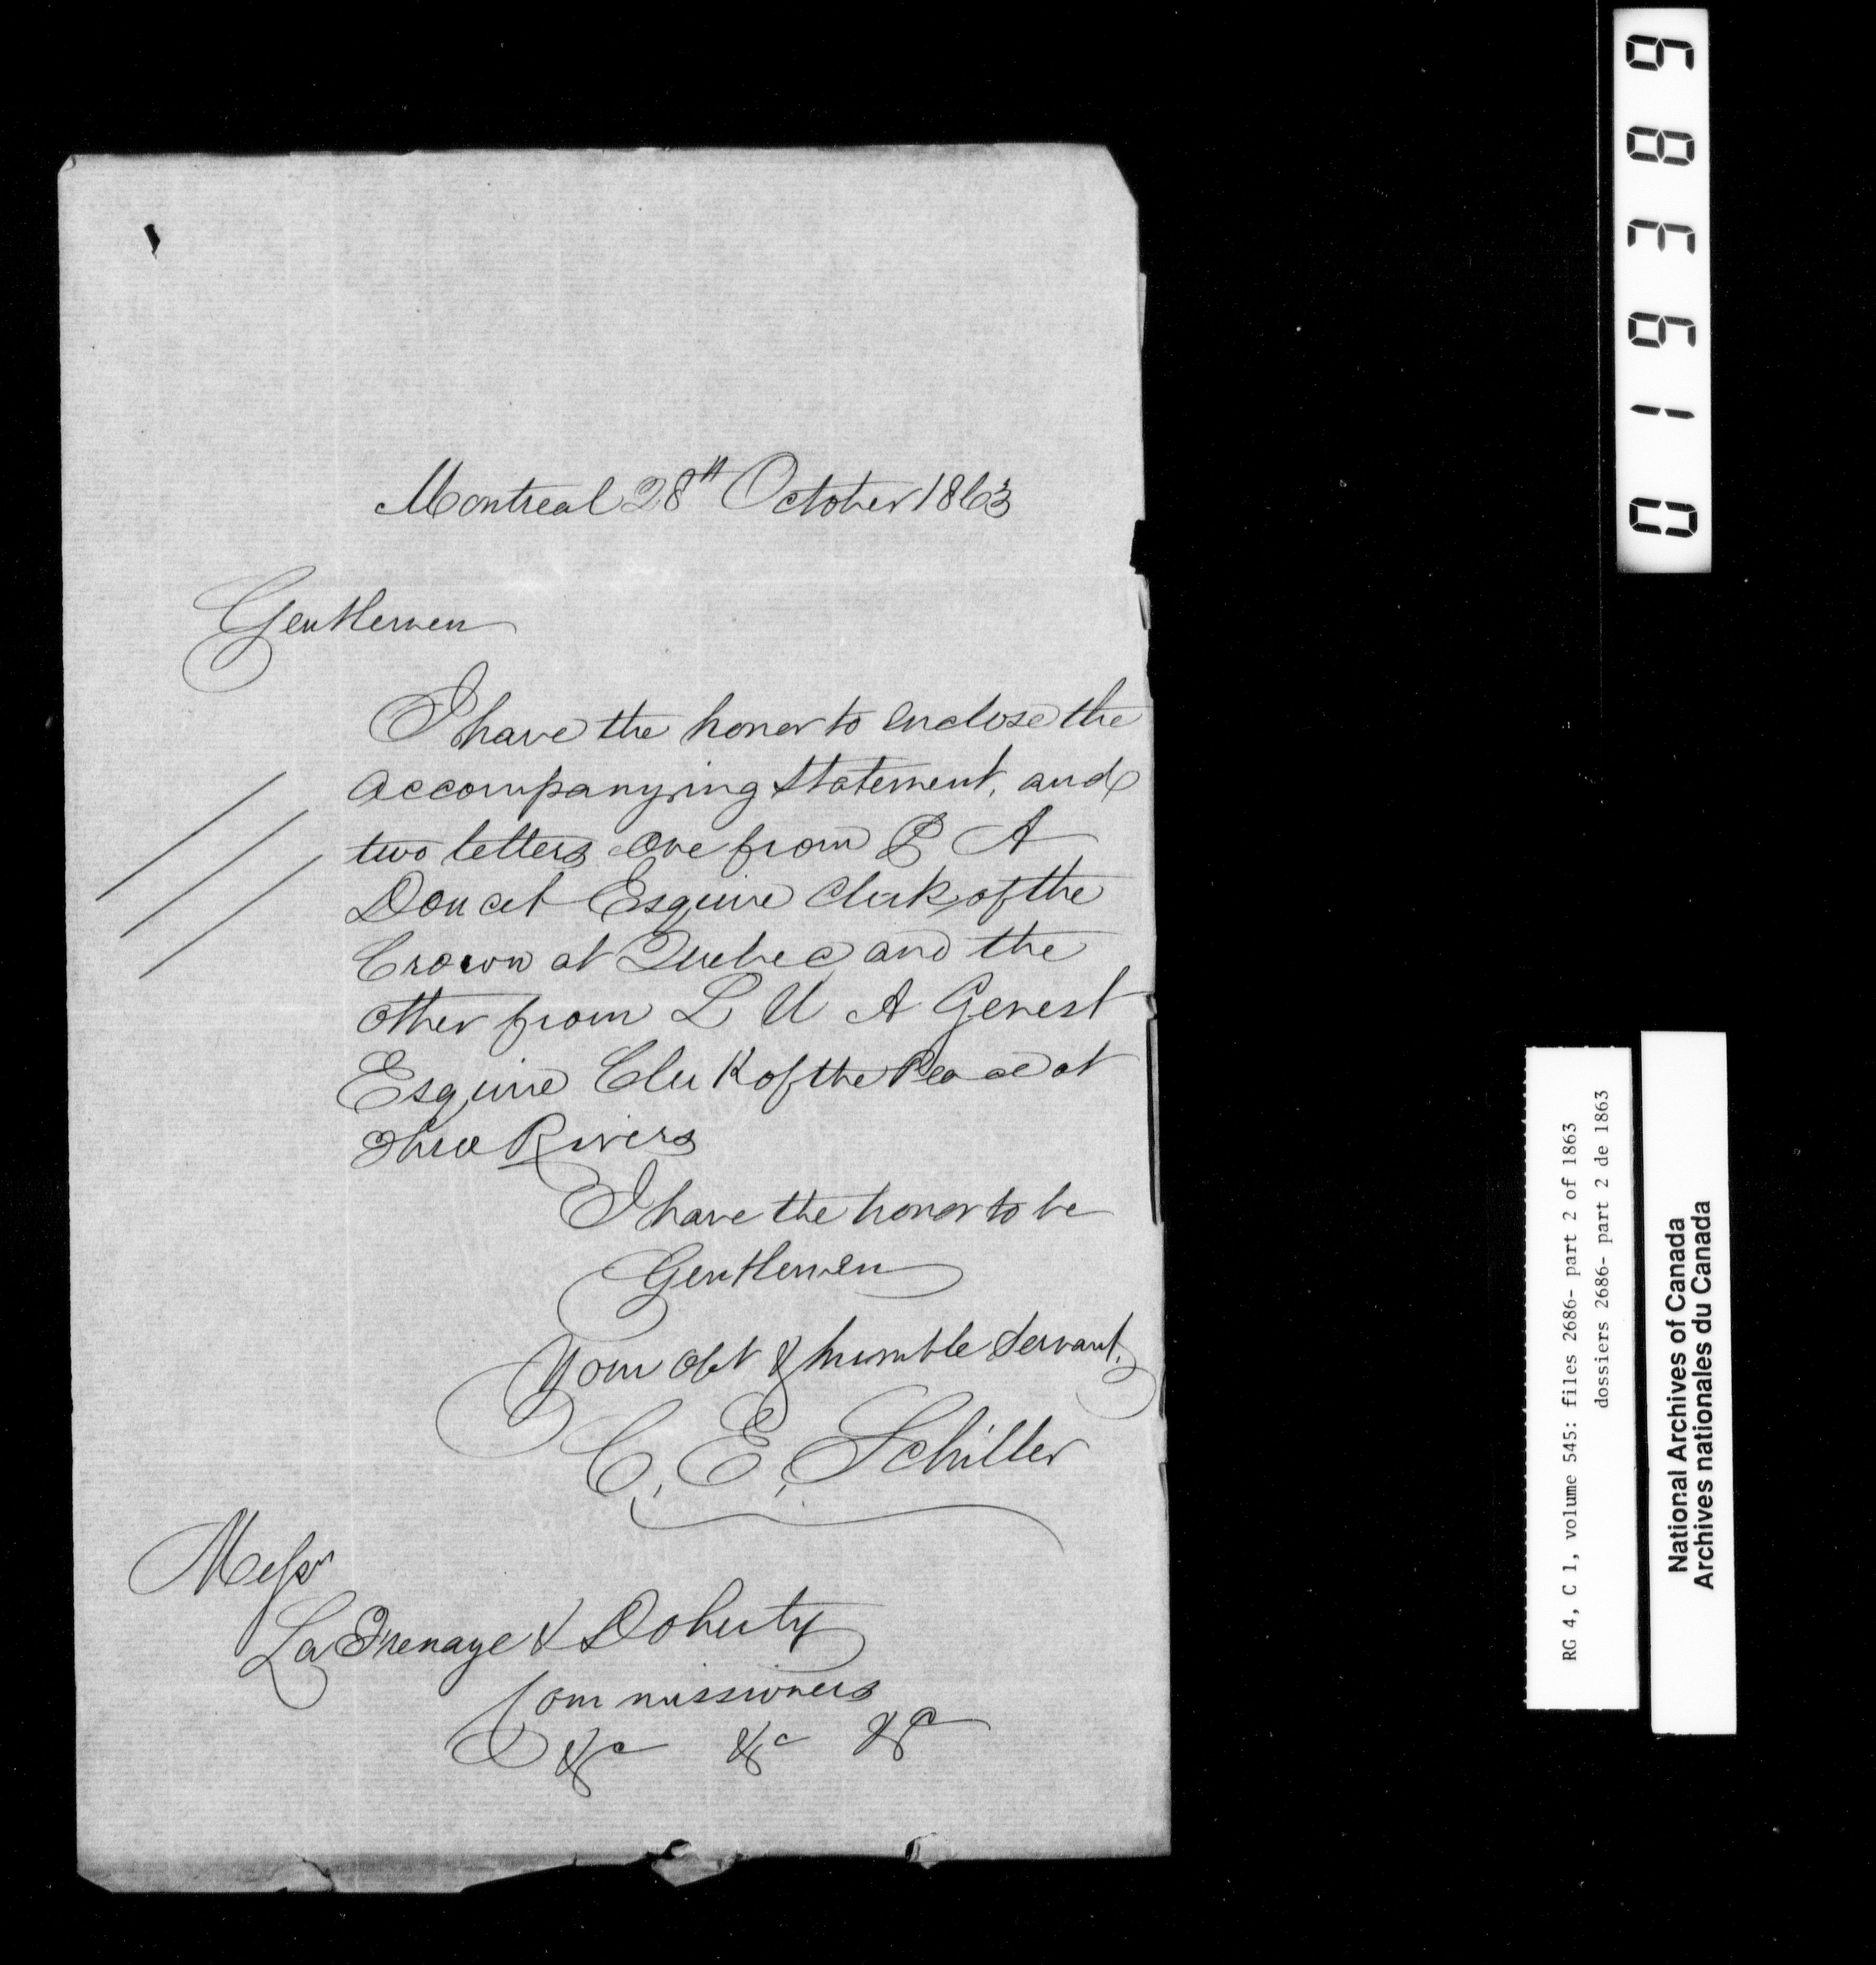 Montreal 28th October 1863
Gentlemen
I have the honor to enclose the
accompanying statement, and
two letters one from P A
Doucet Esquire Clerk of the
Crown at Quebec and the
other from L U A Genest
Esquire Clerk of the Peace at
Three Rivers
I have the honor to be
Gentlemen
Your obt & humble Servant,
C. E. Schiller
Messrs
LaFrenaye & Doherty
Commissioners
&c &c &c
019389
RG 4, C 1, volume 545: files 2686- part 2 of 1863
dossiers 2686- part 2 de 1863
National Archives of Canada
Archives nationales du Canada